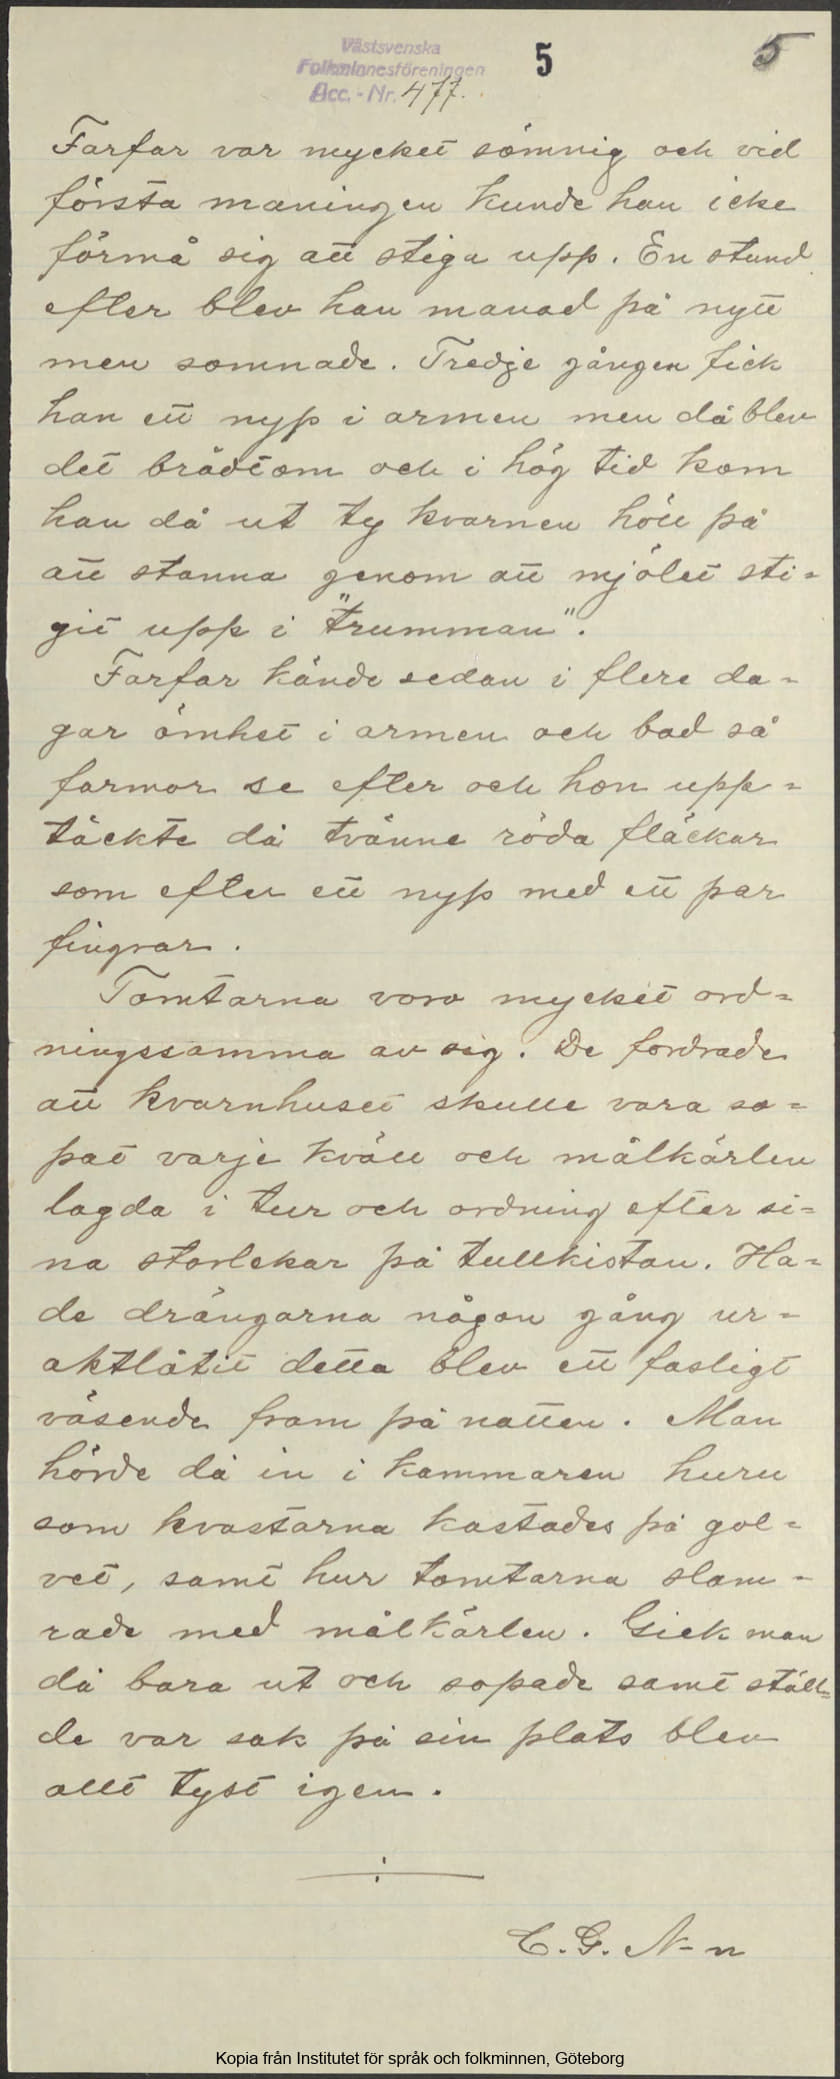 Västsvenska
Folkminnesföreningen
Acc.-Nr. 477.
5
5
Farfar var mycket sömnig och vid
första maningen kunde han icke
förmå sig att stiga upp. En stund
efter blev han manad på nytt
men somnade. Tredje gången fick
han ett nyp i armen men då blev
det bråttom och i hög tid kom
han då ut ty kvarnen höll på
att stanna genom att mjölet sti-
git upp i "trumman".
Farfar kände sedan i flere da-
gar ömhet i armen och bad så
farmor se efter och hon upp-
täckte då tvänne röda fläckar
som efter ett nyp med ett par
fingrar.
Tomtarna voro mycket ord-
ningssamma av sig. De fordrade
att kvarnhuset skulle vara so-
pat varje kväll och målkärlen
lagda i tur och ordning efter si-
na storlekar på tullkistan. Ha-
de drängarna någon gång ur-
aktlåtit detta blev ett fasligt
väsende fram på natten. Man
hörde då in i kammaren huru
som kvastarna kastades på gol-
vet, samt hur tomtarna slam-
rade med målkärlen. Gick man
då bara ut och sopade samt ställ-
de var sak på sin plats blev
allt tyst igen.
C. G. N-n
Kopia från Institutet för språk och folkminnen, Göteborg